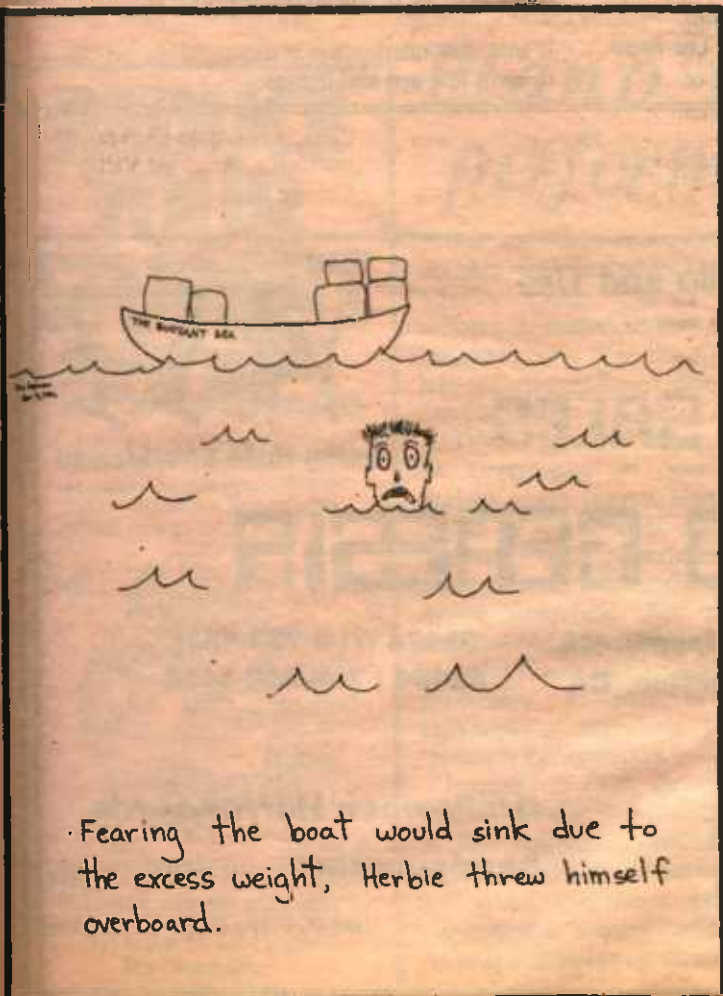 THE BUOYANT SEA
Fearing the boat would sink due to
the excess weight, Herbie threw himself
overboard.